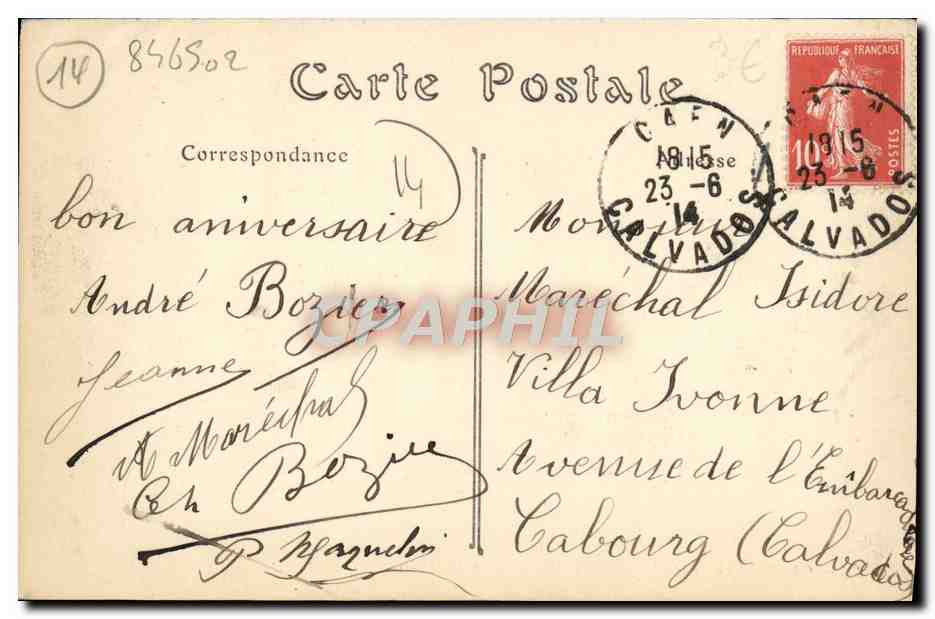 14
846502
3€
Carte Postale
REPUBLIQUE FRANÇAISE
10c
POSTES
CAEN
18 15
23 -6
14
CALVADOS
CAEN
18 15
23 -6
14
CALVADOS
Correspondance
14
bon aniversaire
André Bozier
Jeanne
A Maréchal
Ch Bozier
P
Adresse
Monsieur
Maréchal Isidore
Villa Ivonne
Avenue de l'Embarcadère
Cabourg (Calvados)
CPAPHIL